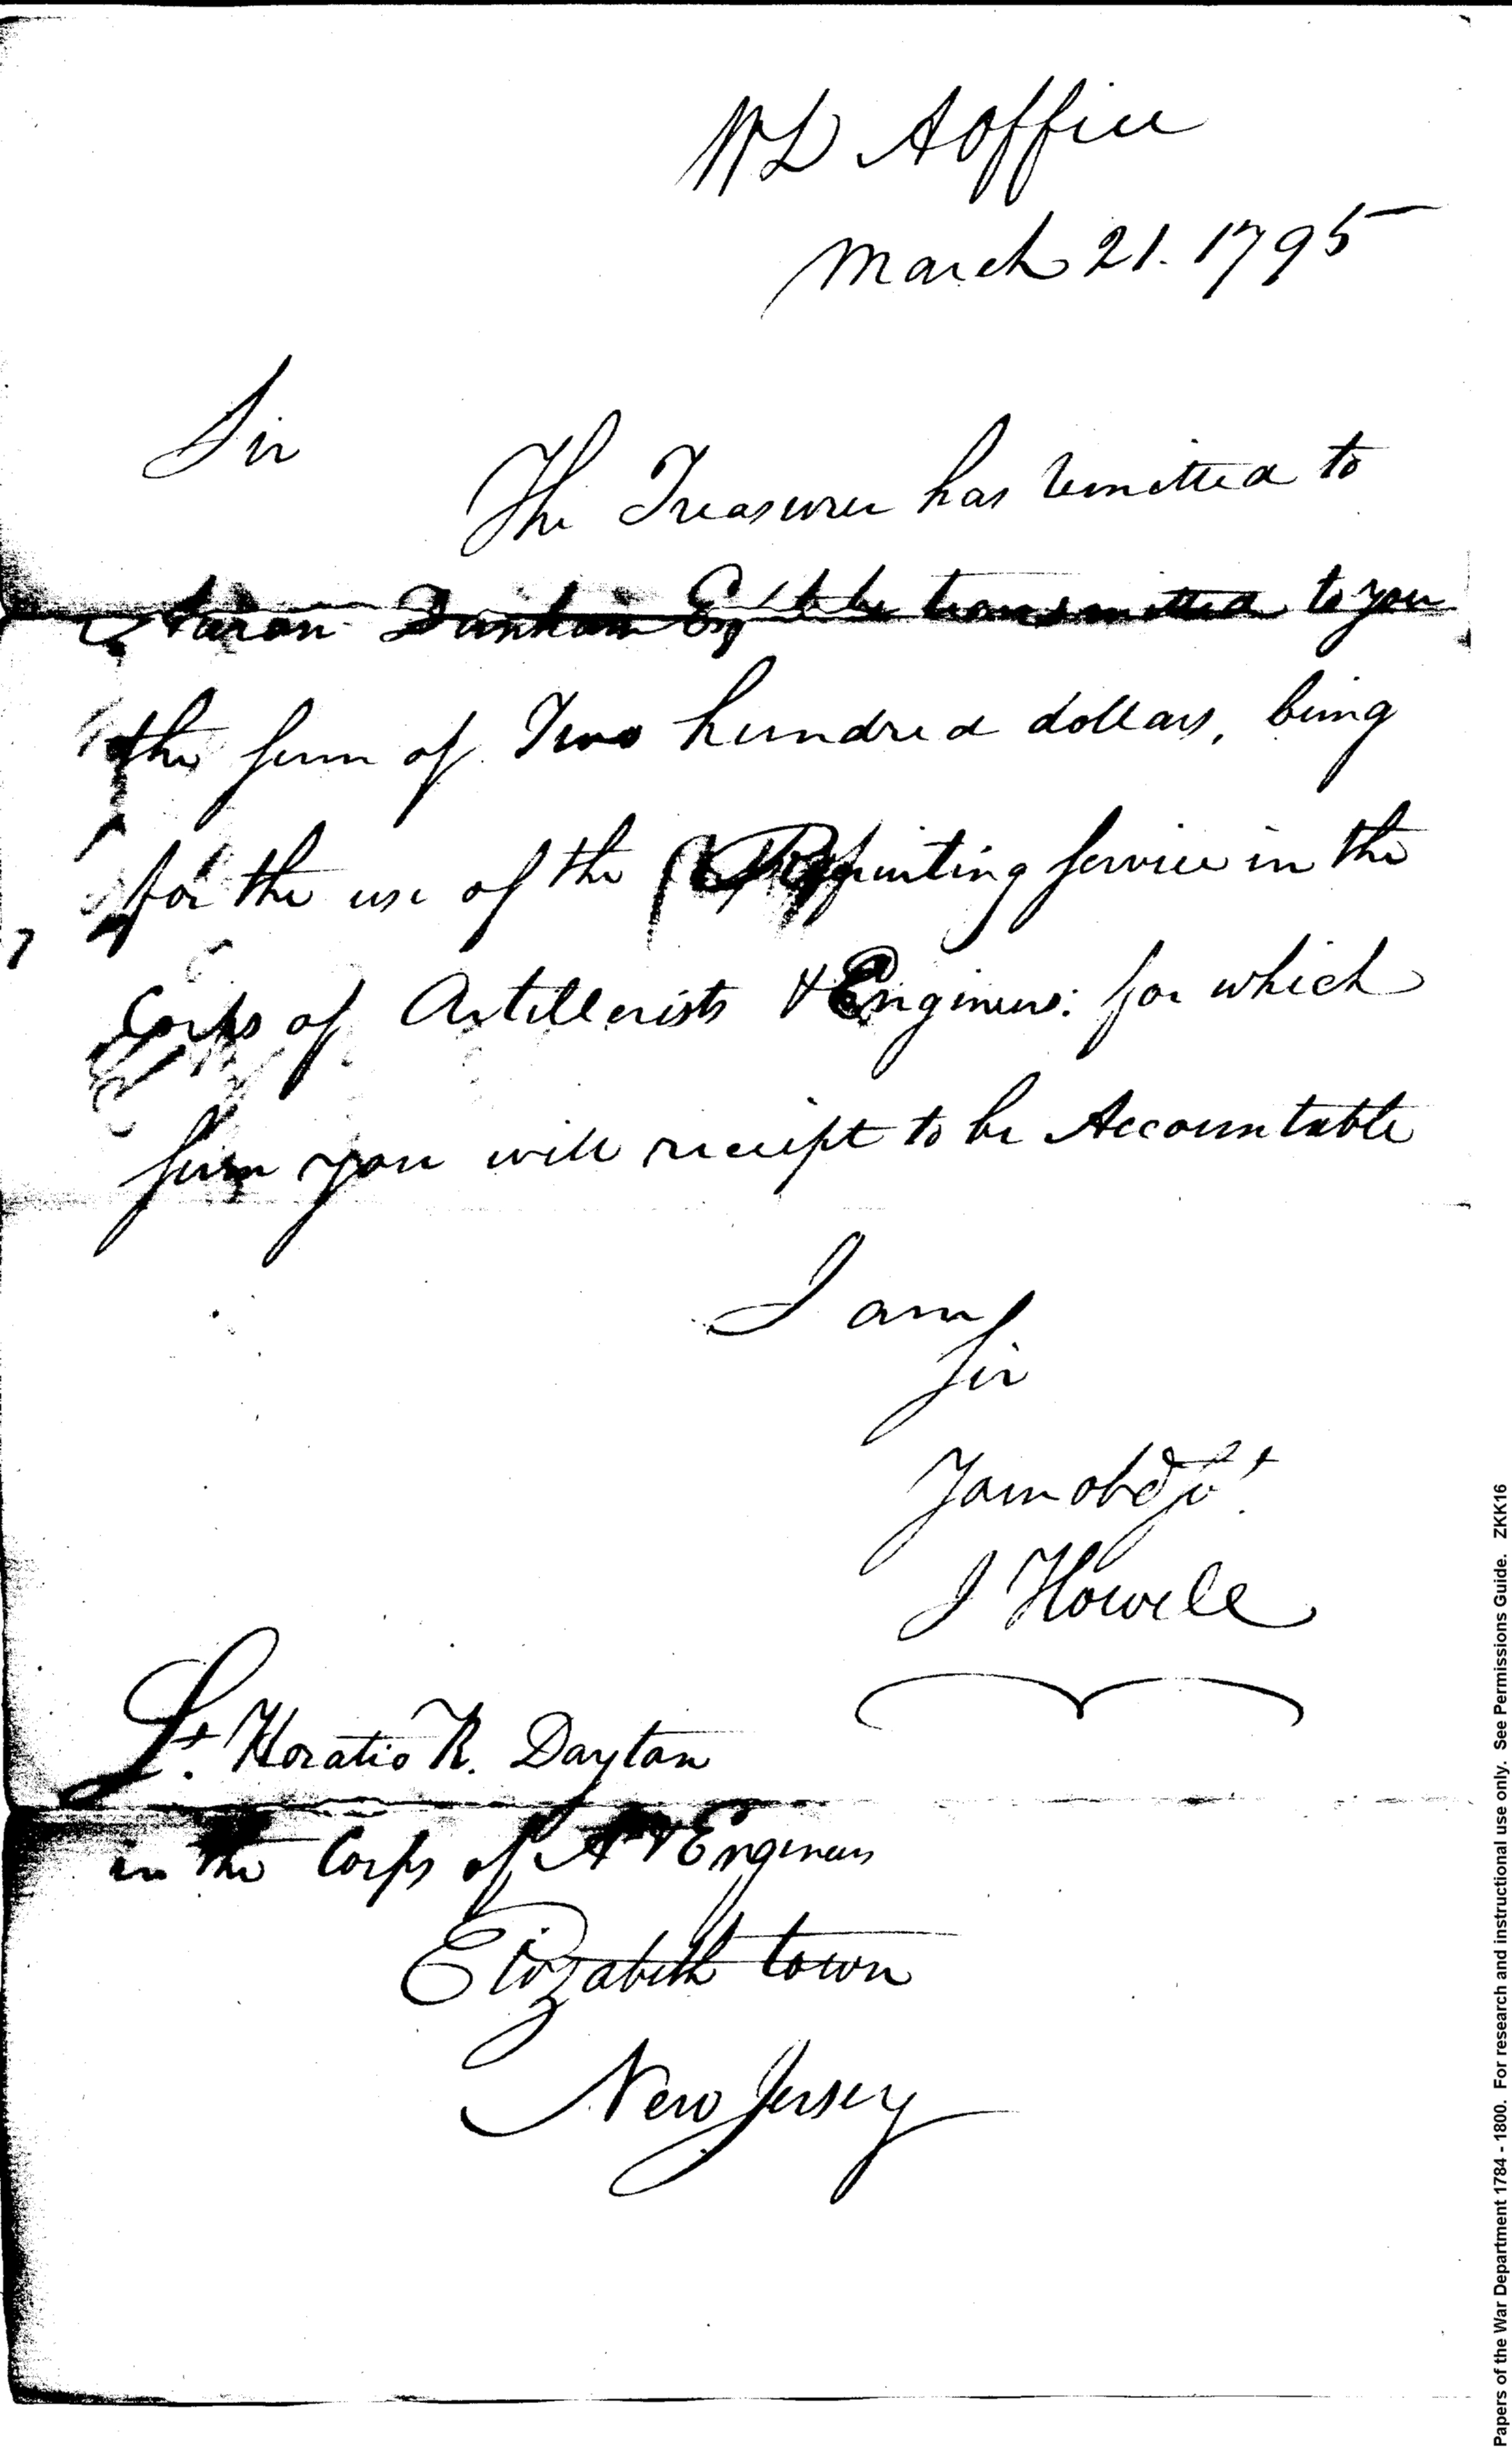 WD A Office
March 21. 1795
Sir
The Treasurer has remitted to
Aaron Dunham Esq to be transmitted to you
the sum of Two hundred dollars, being
for the use of the Recruiting service in the
Corps of Artillerists & Engineers: for which
sum you will receipt to be Accountable
I am
Sir
Your obd St.
J Howell
Lt. Horatio R. Dayton
in the Corps of A & Engineers
Elizabeth town
New Jersey
Papers of the War Department 1784 - 1800. For research and instructional use only. See Permissions Guide. ZKK16